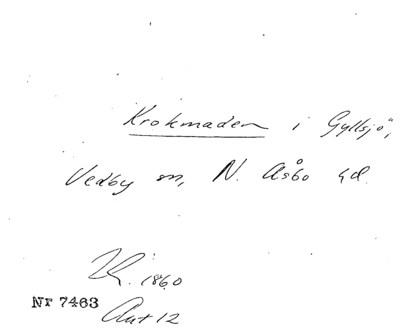 Krokmaden i Gyllsjö,
Vedby sn, N. Åsbo hd.
R. 1860
Nr 7463
Aut 12